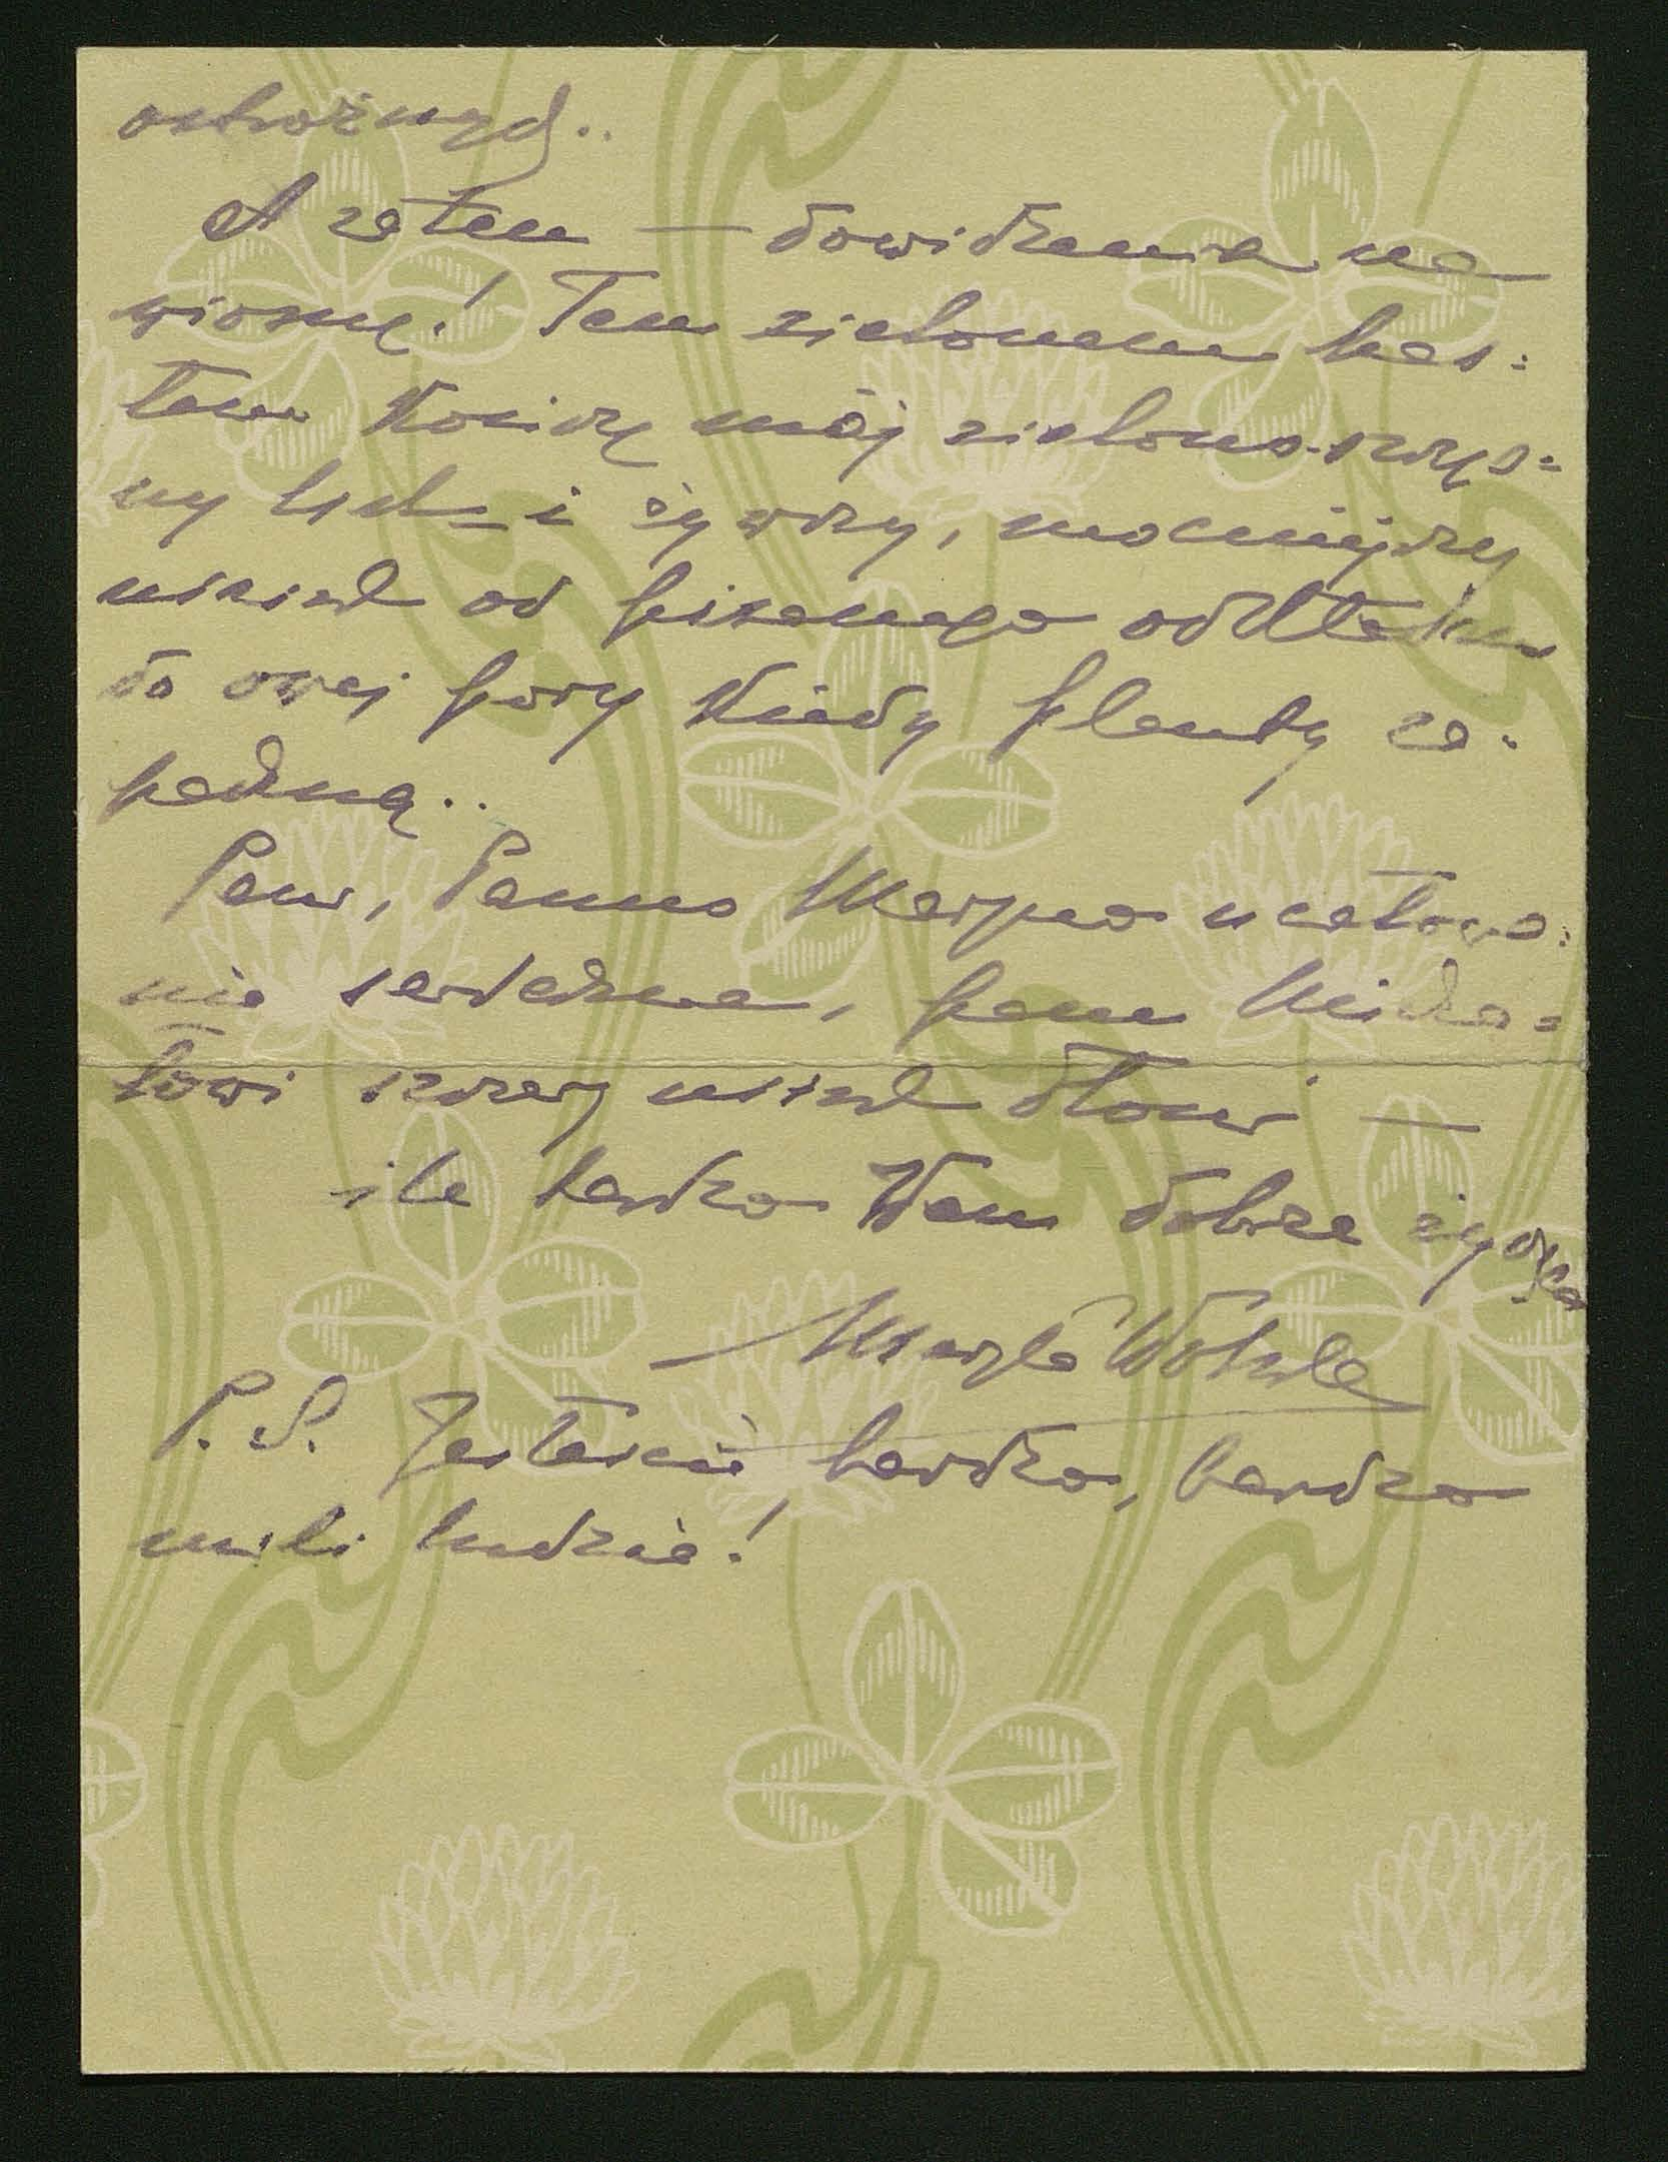 ostrożnych..
A zatem — dowidzenia na
wiosnę! Tem zielonem has=
łem kończę mój zielono-
ny list i żywszy, mocniejszy
uścisk od pisanego odkładam
do owej pory kiedy klamki za=
padną..
Pani, Panno Maryno ucałowa=
nia serdeczne, panu Micha=
łowi szczery uścisk dłoni —
ile bardzo Wam dobrze życzę
Maryla Wolska
P.S. Jesteście bardzo, bardzo
mili ludzie!